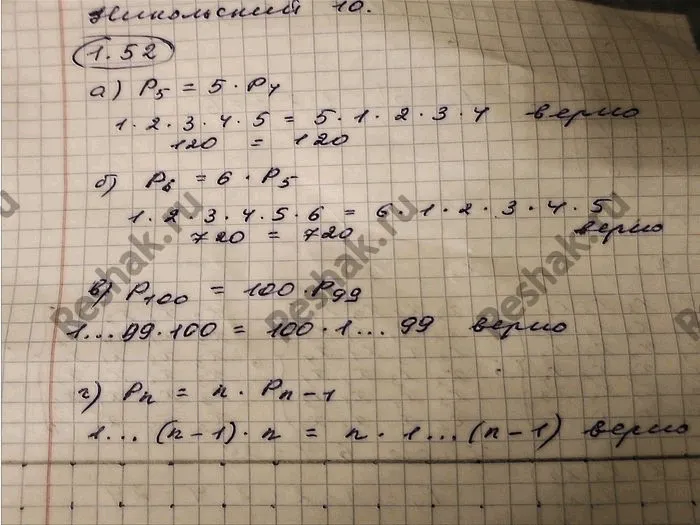 Никольский 10.
1.52
а) P₅ = 5 · P₄
1 · 2 · 3 · 4 · 5 = 5 · 1 · 2 · 3 · 4 верно
120 = 120
б) P₆ = 6 · P₅
1 · 2 · 3 · 4 · 5 · 6 = 6 · 1 · 2 · 3 · 4 · 5
720 = 720 верно
в) P₁₀₀ = 100 · P₉₉
1...99 · 100 = 100 · 1...99 верно
г) Pₙ = n · Pₙ₋₁
1...(n-1) · n = n · 1...(n-1) верно
Reshak.ru
Reshak.ru